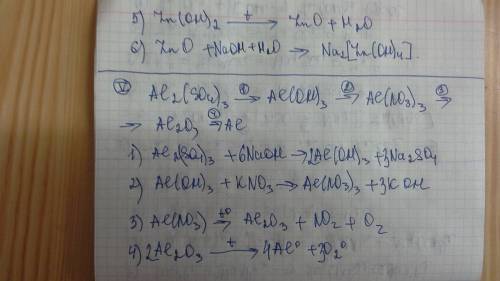 5) Zn(OH)2 t→ ZnO + H2O
6) ZnO + NaOH + H2O → Na2[Zn(OH)4].
V Al2(SO4)3 1→ Al(OH)3 2→ Al(NO3)3 3→
→ Al2O3 4→ Al
1) Al2(SO4)3 + 6NaOH → 2Al(OH)3 + 3Na2SO4
2) Al(OH)3 + KNO3 → Al(NO3)3 + 3KOH
3) Al(NO3) t°→ Al2O3 + NO2 + O2
4) 2Al2O3 t→ 4Al° + 3O2°